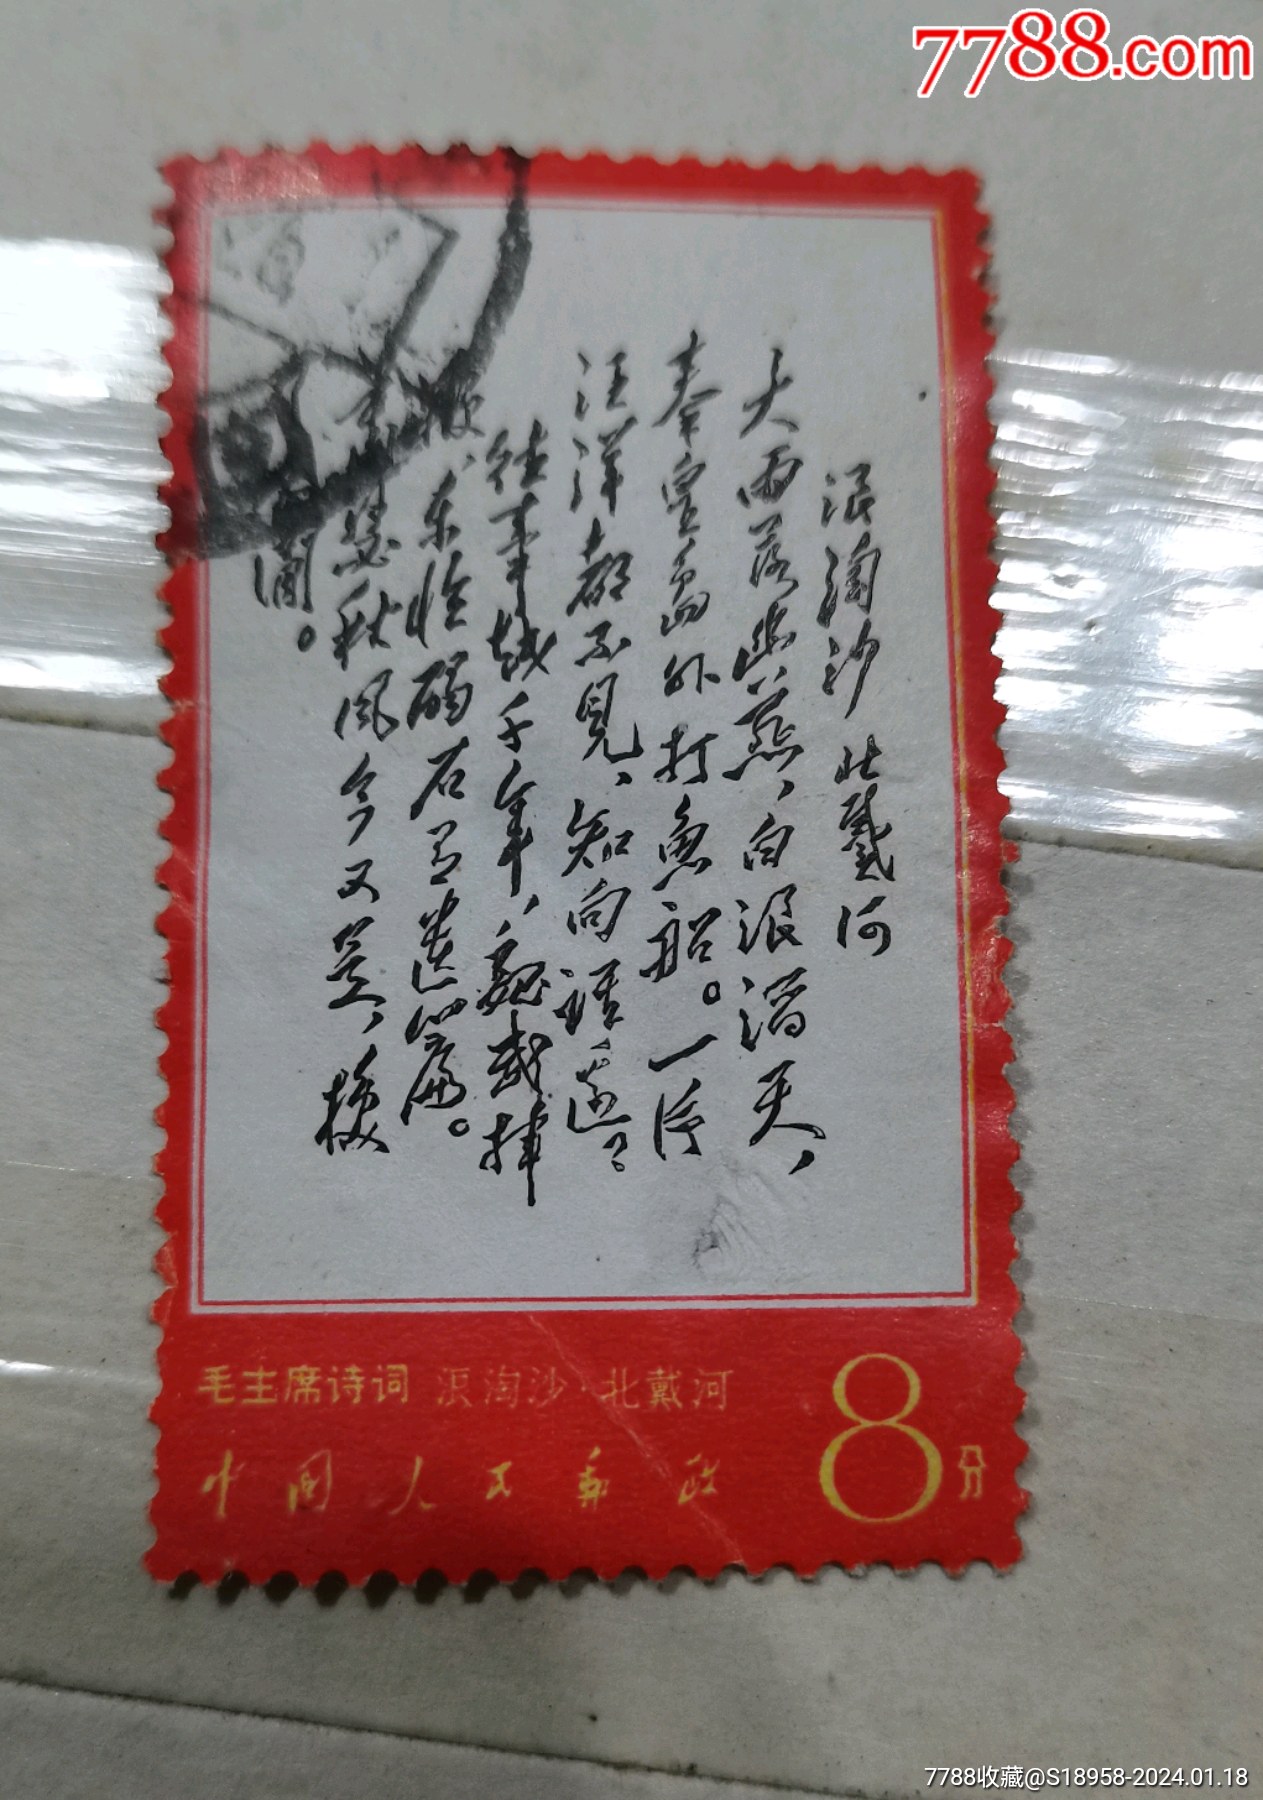 7788.com
浪淘沙 北戴河
大雨落幽燕、白浪滔天、
秦皇島外打魚船。一片
汪洋都不見、知向誰邊。
往事越千年、魏武揮
鞭、東临碣石有遺篇。
蕭瑟秋風今又是、換
人間。
毛主席诗词 浪淘沙·北戴河
中国人民邮政
8分
7788收藏@S18958-2024.01.18